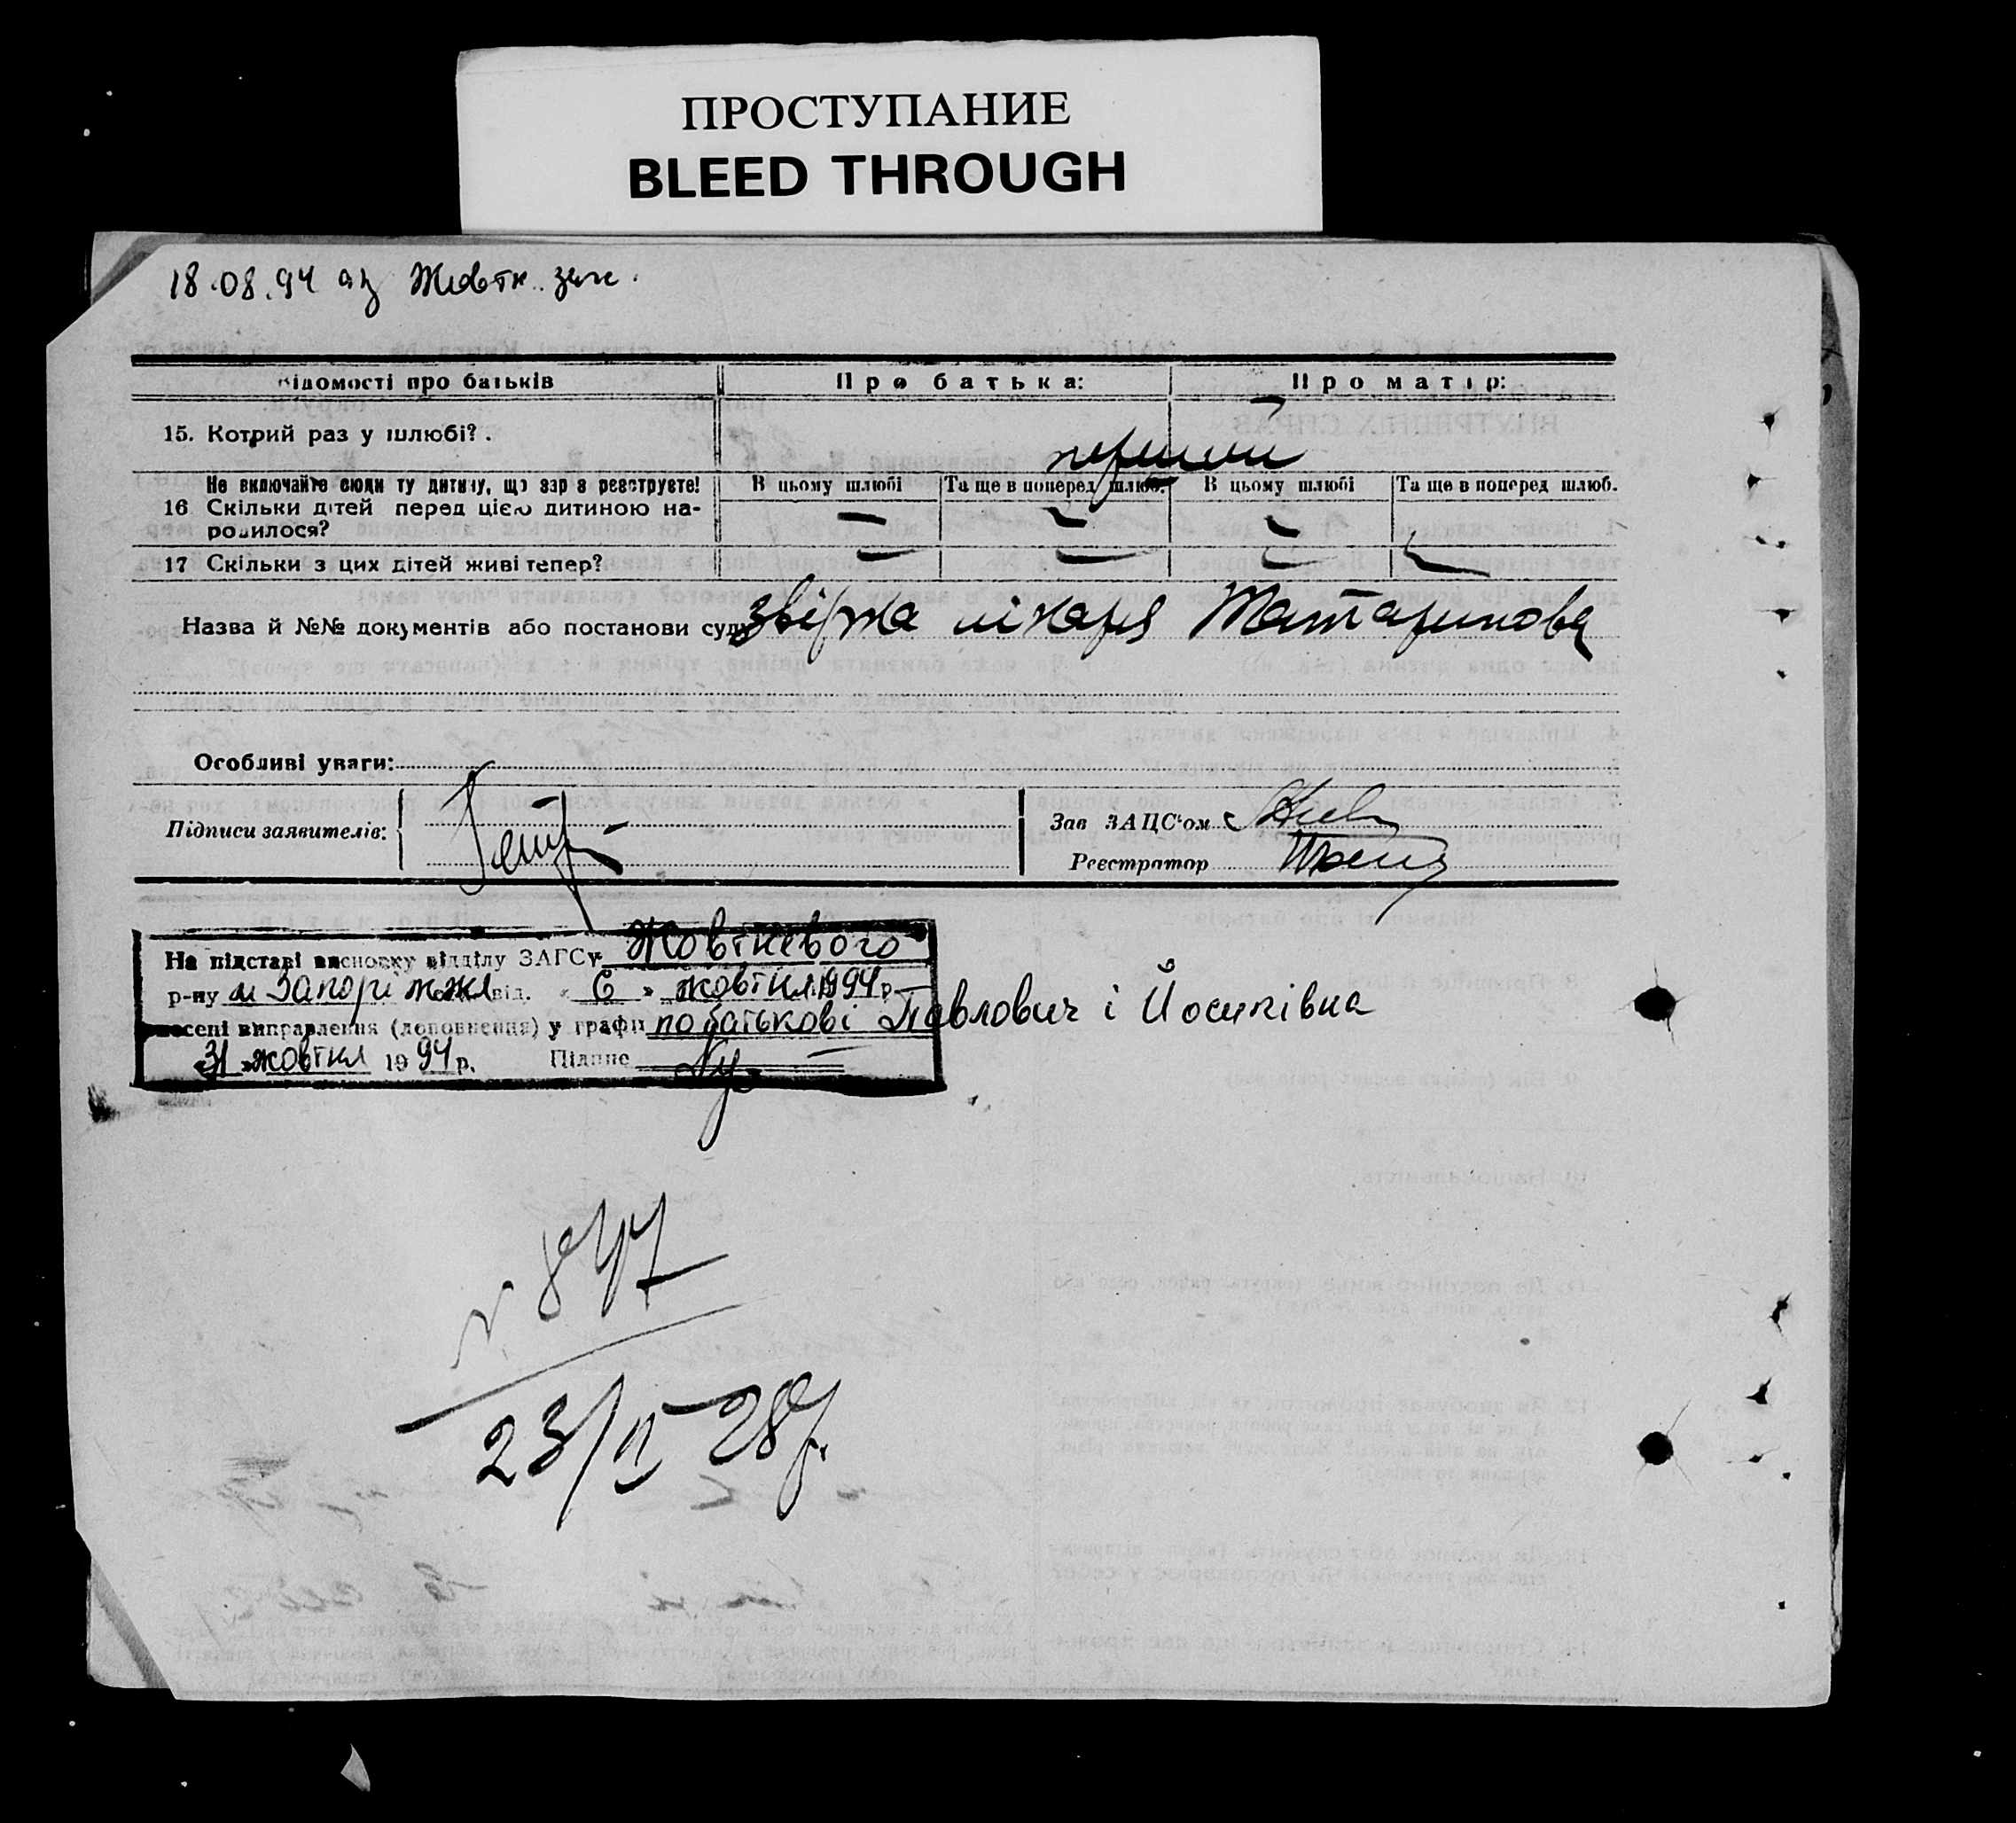 ПРОСТУПАНИЕ
BLEED THROUGH
18.08.94 аз Жовтн. загс.
Відомості про батьків Про батька: Про матір:
15. Котрий раз у шлюбі?.
перший
Не включайте сюди ту дитину, що зараз реєструєте!
В цьому шлюбі Та ще в поперед. шлюб. В цьому шлюбі Та ще в поперед шлюб.
16 Скільки дітей перед цією дитиною на-
родилося?
17 Скільки з цих дітей живі тепер?
Назва й №№ документів або постанови суду звірка лікаря Татаринова
Особливі уваги:
Підписи заявителів:
Зав ЗАЦС'ом
Реєстратор
На підставі висновку відділу ЗАГСу Жовтневого
р-ну м Запоріжжя від. « 6 » жовтня 1994 р.
внесені виправлення (доповнення) у графи по батькові Павлович і Йосипівна
«31» жовтня 1994 р. Підпис
№ 847
23/II 28 р.